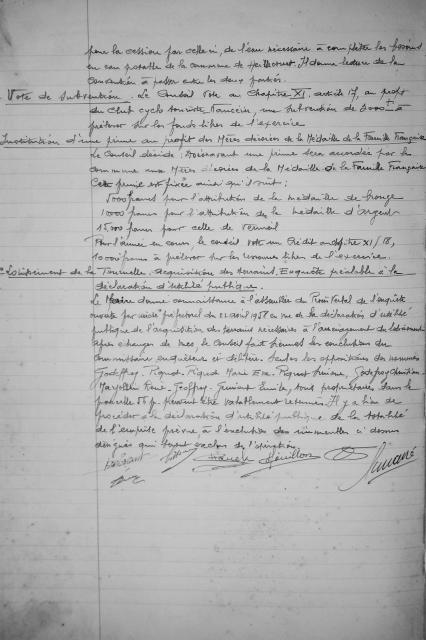 pour la cession par celle ci, de l'eau nécessaire à compléter les besoins
en eau potable de la commune de Heillecourt. Il donne lecture de la
Convention à passer entre les deux parties.
Vote de Subvention. Le Conseil Vote au Chapitre XI article 17, au profit
du Club cyclo touriste Nancéien, une Subvention de
prélever sur les fonds libres de l'exercice
Institution d'une prime au profit des Mères décorées de la Médaille de la Famille Française
Le Conseil décide: Désormais une prime sera accordée par la
commune aux Mères décorées de la Médaille de la Famille Française
Cette prime est fixée ainsi qu'il suit:
5000 francs pour l'attribution de la médaille de bronze
10000 francs pour l'attribution de la médaille d'argent
15000 francs pour celle de Vermeil
Pour l'année en cours, le conseil vote un Crédit chapitre XI/18,
francs à prélever sur les ressources libres de l'exercice.
Lotissement de la Tournelle. Acquisition des terrains. Enquête préalable à la
déclaration d'utilité publique.
Le Maire donne connaissance à l'assemblée du Procès Verbal de l'enquête
ouverte par arrêté préfectoral du 21 avril 1958 en vue de la déclaration d'utilité
publique de l'acquisition des terrains nécessaires à l'aménagement du lotissement
après échanges de vues, le Conseil fait siennes les conclusions du
Commissaire enquêteur et délibère. Seules les oppositions des nommés
Godffroy. Piquot. Piquot Marie Eve.
René. Geoffroy. Emile, tous propriétaires dans la
parcelle peuvent être valablement retenues. Il y a lieu de
procéder à la déclaration d'utilité publique de la totalité
de l'emprise prévue à l'exclusion des ci dessus
désignés qui seront exclus de l'opération.